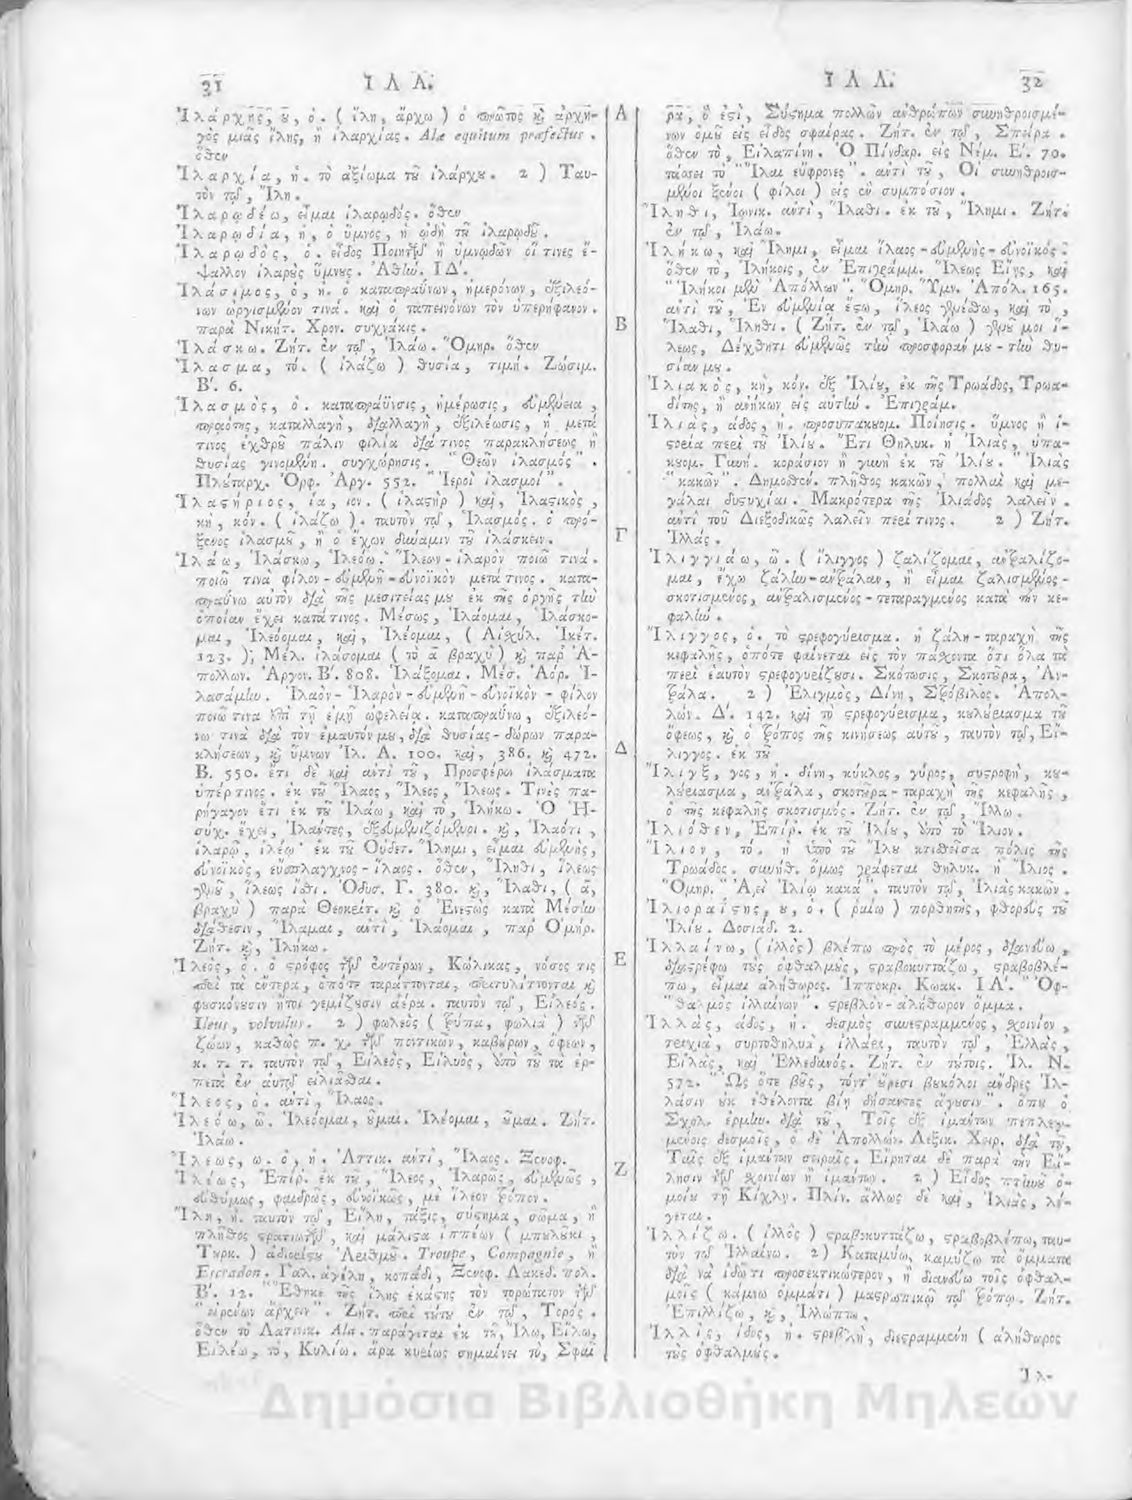 31 ἸΛΑ.
Ἰλάρχης, ου, ὁ. ( ἴλη, ἄρχω ) ὁ πρῶτος καὶ ἀρχη-
γὸς μιᾶς ἴλης, ἢ ἰλαρχίας. Alæ equitum præfectus.
ὅθεν
Ἰλαρχία, ἡ. τὸ ἀξίωμα τοῦ ἰλάρχου. 2 ) Ταυ-
τὸν τῷ, Ἴλη.
Ἱλαρῳδέω, εἶμαι ἱλαρῳδός. ὅθεν
Ἱλαρῳδία, ἡ, ὁ ὕμνος, ἡ ᾠδὴ τοῦ ἱλαρῳδοῦ.
Ἱλαρῳδὸς, ὁ. εἶδος Ποιητῶν ἢ ὑμνῳδῶν οἵ τινες ἔ-
ψαλλον ἱλαροὺς ὕμνους. Ἀθήν. ΙΔ΄.
Ἱλάσιμος, ὁ, ἡ. ὁ καταπραΰνων, ἡμερόνων, ἐξιλεό-
νων ὠργισμένον τινά. καὶ ὁ ταπεινόνων τὸν ὑπερήφανον.
παρὰ Νικήτ. Χρον. συχνάκις.
Ἱλάσκω. Ζήτ. ἐν τῷ, Ἱλάω. Ὅμηρ. ὅθεν
Ἵλασμα, τό. ( ἱλάζω ) θυσία, τιμή. Ζώσιμ.
Β΄. 6.
Ἱλασμὸς, ὁ. καταπράϋνσις, ἡμέρωσις, εὐμένεια,
πραότης, καταλλαγὴ, διαλλαγὴ, ἐξιλέωσις, ἡ μετά
τινος ἐχθροῦ πάλιν φιλία διά τινος παρακλήσεως ἢ
θυσίας γινομένη. συγχώρησις. "Θεῶν ἱλασμός".
Πλούταρχ. Ὀρφ. Ἀργ. 552. "Ἱεροὶ ἱλασμοί".
Ἱλαστήριος, ία, ιον. ( ἱλαστὴρ ) καὶ, Ἱλαστικὸς,
κὴ, κόν. ( ἱλάζω ). ταυτὸν τῷ, Ἱλασμός. ὁ πρό-
ξενος ἱλασμοῦ, ἢ ὁ ἔχων δύναμιν τοῦ ἱλάσκειν.
Ἱλάω, Ἱλάσκω, Ἱλεόω. Ἵλεων-ἱλαρὸν ποιῶ τινά.
ποιῶ τινὰ φίλον-εὐμενῆ-εὐνοϊκὸν μετά τινος. κατα-
πραΰνω αὐτὸν διὰ τῆς μεσιτείας μου ἐκ τῆς ὀργῆς τὴν
ὁποίαν ἔχει κατά τινος. Μέσως, Ἱλάομαι, Ἱλάσκο-
μαι, Ἱλεόομαι, καὶ, Ἱλέομαι, ( Αἰσχύλ. Ἱκέτ.
123. ); Μέλ. ἱλάσομαι ( τὸ ᾰ βραχὺ ) καὶ παρ' Ἀ-
πολλων. Ἀργον. Β΄. 808. Ἱλάξομαι. Μέσ. Ἀόρ. Ἱ-
λασάμην. Ἱλαὸν-Ἱλαρὸν-εὐμενῆ-εὐνοϊκὸν-φίλον
ποιῶ τινα ἐπὶ τῇ ἐμῇ ὠφελείᾳ. καταπραΰνω, ἐξιλεό-
νω τινὰ διὰ τὸν ἐμαυτόν μου, διὰ θυσίας-δώρων παρα-
κλήσεων, καὶ ὕμνων Ἰλ. Α. 100. καὶ, 386. καὶ 472.
Β. 550. ἔτι δὲ καὶ ἀντὶ τοῦ, Προσφέρω ἱλάσματα
ὑπέρ τινος. ἐκ τοῦ Ἵλαος, Ἵλεος, Ἵλεως. Τινὲς πα-
ρήγαγον ἔτι ἐκ τοῦ Ἱλάω, καὶ τὸ, Ἱλήκω. Ὁ Ἡ-
σύχ. ἔχει, Ἱλάντες, ἐξευμενιζόμενοι. καὶ, Ἱλαότι,
ἱλαρῷ, ἱλέῳ· ἐκ τοῦ Οὐδετ. Ἵλημι, εἶμαι εὐμενὴς,
εὐνοϊκὸς, εὔσπλαγχνος-ἵλαος. ὅθεν, Ἵληθι, ἵλεως
γενοῦ, ἵλεως ἴσθι. Ὀδυσ. Γ. 380. καὶ, Ἵλαθι, ( ᾰ,
βραχὺ ) παρὰ Θεοκρίτ. καὶ ὁ Ἐνεστὼς κατὰ Μέσην
διάθεσιν, Ἵλαμαι, ἀντὶ, Ἱλάομαι, παρ' Ὁμήρ.
Ζήτ. καὶ, Ἱλήκω.
Ἰλεὸς, ὁ. ὁ στρόφος τῶν ἐντέρων, Κώλικας, νόσος τις
περὶ τὰ ἔντερα, ὁπότε ταράττονται, περιτυλίττονται καὶ
φουσκόνουσιν ἤτοι γεμίζουσιν ἀέρα. ταυτὸν τῷ, Εἰλεός.
Ileus, volvulus. 2 ) φωλεὸς ( τρύπα, φωλιὰ ) τῶν
ζώων, καθὼς π. χ. τῶν ποντικῶν, καβούρων, ὄφεων,
κ. τ. τ. ταυτὸν τῷ, Εἰλεὸς, Εἰλυὸς, ἀπὸ τοῦ τὰ ἑρ-
πετὰ ἐν αὐτῷ εἰλιᾶσθαι.
Ἵλεος, ὁ. ἀντὶ, Ἵλαος.
Ἱλεόω, ῶ. Ἱλεόομαι, οῦμαι. Ἱλέομαι, οῦμαι. Ζήτ.
Ἱλάω.
Ἵλεως, ω. ὁ, ἡ. Ἀττικ. ἀντὶ, Ἵλαος. Ξενοφ.
Ἱλέως, Ἐπίρ. ἐκ τοῦ, Ἵλεος, Ἱλαρῶς, εὐμενῶς,
εὐθύμως, φαιδρῶς, εὐνοϊκῶς, μὲ ἵλεον τρόπον.
Ἴλη, ἡ. ταυτὸν τῷ, Εἴλη, τάξις, σύστημα, σῶμα, ἢ
πλῆθος στρατιωτῶν, καὶ μάλιστα ἱππέων ( μπουλούκι,
Τουρκ. ) ἀδιορίστου Ἀριθμοῦ. Troupe, Compagnie, ἢ
Escradon. Γαλ. ἀγέλη, κοπάδι, Ξενοφ. Λακεδ. πολ.
Β΄. 12. "Ἔθηκε τῆς ἴλης ἑκάστης τὸν τορώτατον τῶν
"εἰρένων ἄρχειν". Ζήτ. περὶ τούτου ἐν τῷ, Τορός.
ὅθεν τὸ Λατινικ. Ala. παράγεται ἐκ τοῦ, Ἴλω, Εἴλω,
Εἰλέω, τὸ, Κυλίω. ἄρα κυρίως σημαίνει τὸ, Σφαῖ
Α
Β
Γ
Δ
Ε
Ζ
ἸΛΛ. 32
ρα, ὅ ἐστι, Σύστημα πολλῶν ἀνθρώπων συνηθροισμέ-
νων ὁμοῦ εἰς εἶδος σφαίρας. Ζήτ. ἐν τῷ, Σπεῖρα.
ὅθεν τὸ, Εἰλαπίνη. Ὁ Πίνδαρ. εἰς Νέμ. Ε΄. 70.
τὸ "Ἴλαι εὔφρονες". ἀντὶ τοῦ, Οἱ συνηθροισ-
μένοι ξένοι ( φίλοι ) εἰς ἓν συμπόσιον.
Ἵληθι, Ἰωνικ. ἀντὶ, Ἵλαθι. ἐκ τοῦ, Ἵλημι. Ζήτ.
ἐν τῷ, Ἱλάω.
Ἱλήκω, καὶ Ἵλημι, εἶμαι ἵλαος-εὐμενὴς-εὐνοϊκός.
ὅθεν τὸ, Ἱλήκοις, ἐν Ἐπιγράμμ. Ἵλεως Εἴης, καὶ
"Ἱλήκοι μὲν Ἀπόλλων". Ὅμηρ. Ὕμν. Ἀπόλ. 165.
ἀντὶ τοῦ, Ἐν εὐμενείᾳ ἔστω, ἵλεος γενέσθω, καὶ τὸ,
Ἵλαθι, Ἵληθι. ( Ζήτ. ἐν τῷ, Ἱλάω ) γενοῦ μοι ἵ-
λεως, Δέχθητι εὐμενῶς τὴν προσφοράν μου-τὴν θυ-
σίαν μου.
Ἰλιακὸς, κὴ, κόν. ἐξ Ἰλίου, ἐκ τῆς Τρωάδος, Τρωα-
δίτης, ἢ ἀνήκων εἰς αὐτήν. Ἐπιγράμ.
Ἰλιὰς, άδος, ἡ. προσυπακουομ. Ποίησις. ὕμνος ἢ ἱ-
στορία περὶ τοῦ Ἰλίου. Ἔτι Θηλυκ. ἡ Ἰλιὰς, ὑπα-
κουομ. Γυνή. κοράσιον ἢ γυνὴ ἐκ τοῦ Ἰλίου. "Ἰλιὰς
"κακῶν". Δημοσθέν. πλῆθος κακῶν, πολλαὶ καὶ με-
γάλαι δυστυχίαι. Μακρότερα τῆς Ἰλιάδος λαλεῖν.
ἀντὶ τοῦ Διεξοδικῶς λαλεῖν περί τινος. 2 ) Ζήτ.
Ἰλλάς.
Ἰλιγγιάω, ῶ. ( ἴλιγγος ) ζαλίζομαι, ἀντραλίζο-
μαι, ἔχω ζάλην-ἀντράλαν, ἢ εἶμαι ζαλισμένος-
σκοτισμένος, ἀντραλισμένος-τεταραγμένος κατὰ τὴν κε-
φαλήν.
Ἴλιγγος, ὁ. τὸ στρεφογύρισμα. ἡ ζάλη-ταραχὴ τῆς
κεφαλῆς, ὁπότε φαίνεται εἰς τὸν πάσχοντα ὅτι ὅλα τὰ
περὶ ἑαυτὸν στρεφογυρίζουσι. Σκότωσις, Σκοτοῦρα, Ἀν-
τράλα. 2 ) Ἑλιγμὸς, Δίνη, Στρόβιλος. Ἀπολ-
λών. Δ. 142. καὶ τὸ στρεφογύρισμα, κουλούριασμα τοῦ
ὄφεως, καὶ ὁ τρόπος τῆς κινήσεως αὐτοῦ, ταυτὸν τῷ, Εἴ-
λιγγος. ἐκ τοῦ
Ἴλιγξ, γος, ἡ. δίνη, κύκλος, γύρος, συστροφὴ, κου-
λούριασμα, ἀντράλα, σκοτοῦρα-ταραχὴ τῆς κεφαλῆς,
ὁ τῆς κεφαλῆς σκοτισμός. Ζήτ. ἐν τῷ, Ἴλλω.
Ἰλιόθεν, Ἐπίρ. ἐκ τοῦ Ἰλίου, ἀπὸ τὸ Ἴλιον.
Ἴλιον, τό. ἡ ὑπὸ τοῦ Ἴλου κτισθεῖσα πόλις τῆς
Τρωάδος. συνήθ. ὅμως γράφεται θηλυκ. ἡ Ἴλιος.
Ὅμηρ. "Ἀεὶ Ἰλίῳ κακά". ταυτὸν τῷ, Ἰλιὰς κακῶν.
Ἰλιοραίστης, ου, ὁ. ( ῥαίω ) πορθητὴς, φθορεὺς τοῦ
Ἰλίου. Δοσιάδ. 2.
Ἰλλαίνω, ( ἰλλὸς ) βλέπω πρὸς τὸ μέρος, διανεύω,
διαστρέφω τοὺς ὀφθαλμοὺς, στραβοκυττάζω, στραβοβλέ-
πω, εἶμαι ἀλήθωρος. Ἱπποκρ. Κωακ. ΙΑ΄. "Ὀφ-
"θαλμὸς ἰλλαίνων". στρεβλὸν-ἀλήθωρον ὄμμα.
Ἰλλὰς, άδος, ἡ. δεσμὸς συνεστραμμένος, σχοινίον,
τριχιὰ, συρτοθηλυὰ, ἰλλάρι, ταυτὸν τῷ, Ἐλλὰς,
Εἰλὰς, καὶ Ἐλλεδανός. Ζήτ. ἐν τούτοις. Ἰλ. Ν.
572. "Ὡς ὅτε βοῦς, τόντ' οὔρεσι βουκόλοι ἄνδρες Ἰλ-
λάσιν οὐκ ἐθέλοντα βίῃ δήσαντες ἄγουσιν". ὅπου ὁ
Σχολ. ἑρμην. διὰ τοῦ, Τοῖς ἐξ ἱμάντων πεπλεγ-
μένοις δεσμοῖς, ὁ δὲ Ἀπολλών. Λεξικ. Χειρ. διὰ τοῦ,
Ταῖς ἐξ ἱμάντων σειραῖς. Εἴρηται δὲ παρὰ τὴν Εἴ-
λησιν τῶν σχοινίων ἢ ἱμάντων. 2 ) Εἶδος πτηνοῦ ὁ-
μοίου τῇ Κίχλῃ. Πλίν. ἄλλως δὲ καὶ, Ἰλιὰς, λέ-
γεται.
Ἰλλίζω. ( ἰλλὸς ) στραβοκυττάζω, στραβοβλέπω, ταυ-
τὸν τῷ Ἰλλαίνω. 2) Καταμύω, καμύζω τὰ ὄμματα
διὰ νὰ ἰδῶ τι προσεκτικώτερον, ἢ διανεύω τοῖς ὀφθαλ-
μοῖς ( κάμνω ὀμμάτι ) μαστρωπικῷ τῷ τρόπῳ. Ζήτ.
Ἐπιλλίζω, καὶ, Ἰλλώπτω,
Ἰλλὶς, ίδος, ἡ. στρεβλὴ, διεστραμμένη ( ἀλήθωρος
τοὺς ὀφθαλμούς.
Ἰλ-
Δημόσια Βιβλιοθήκη Μηλεών